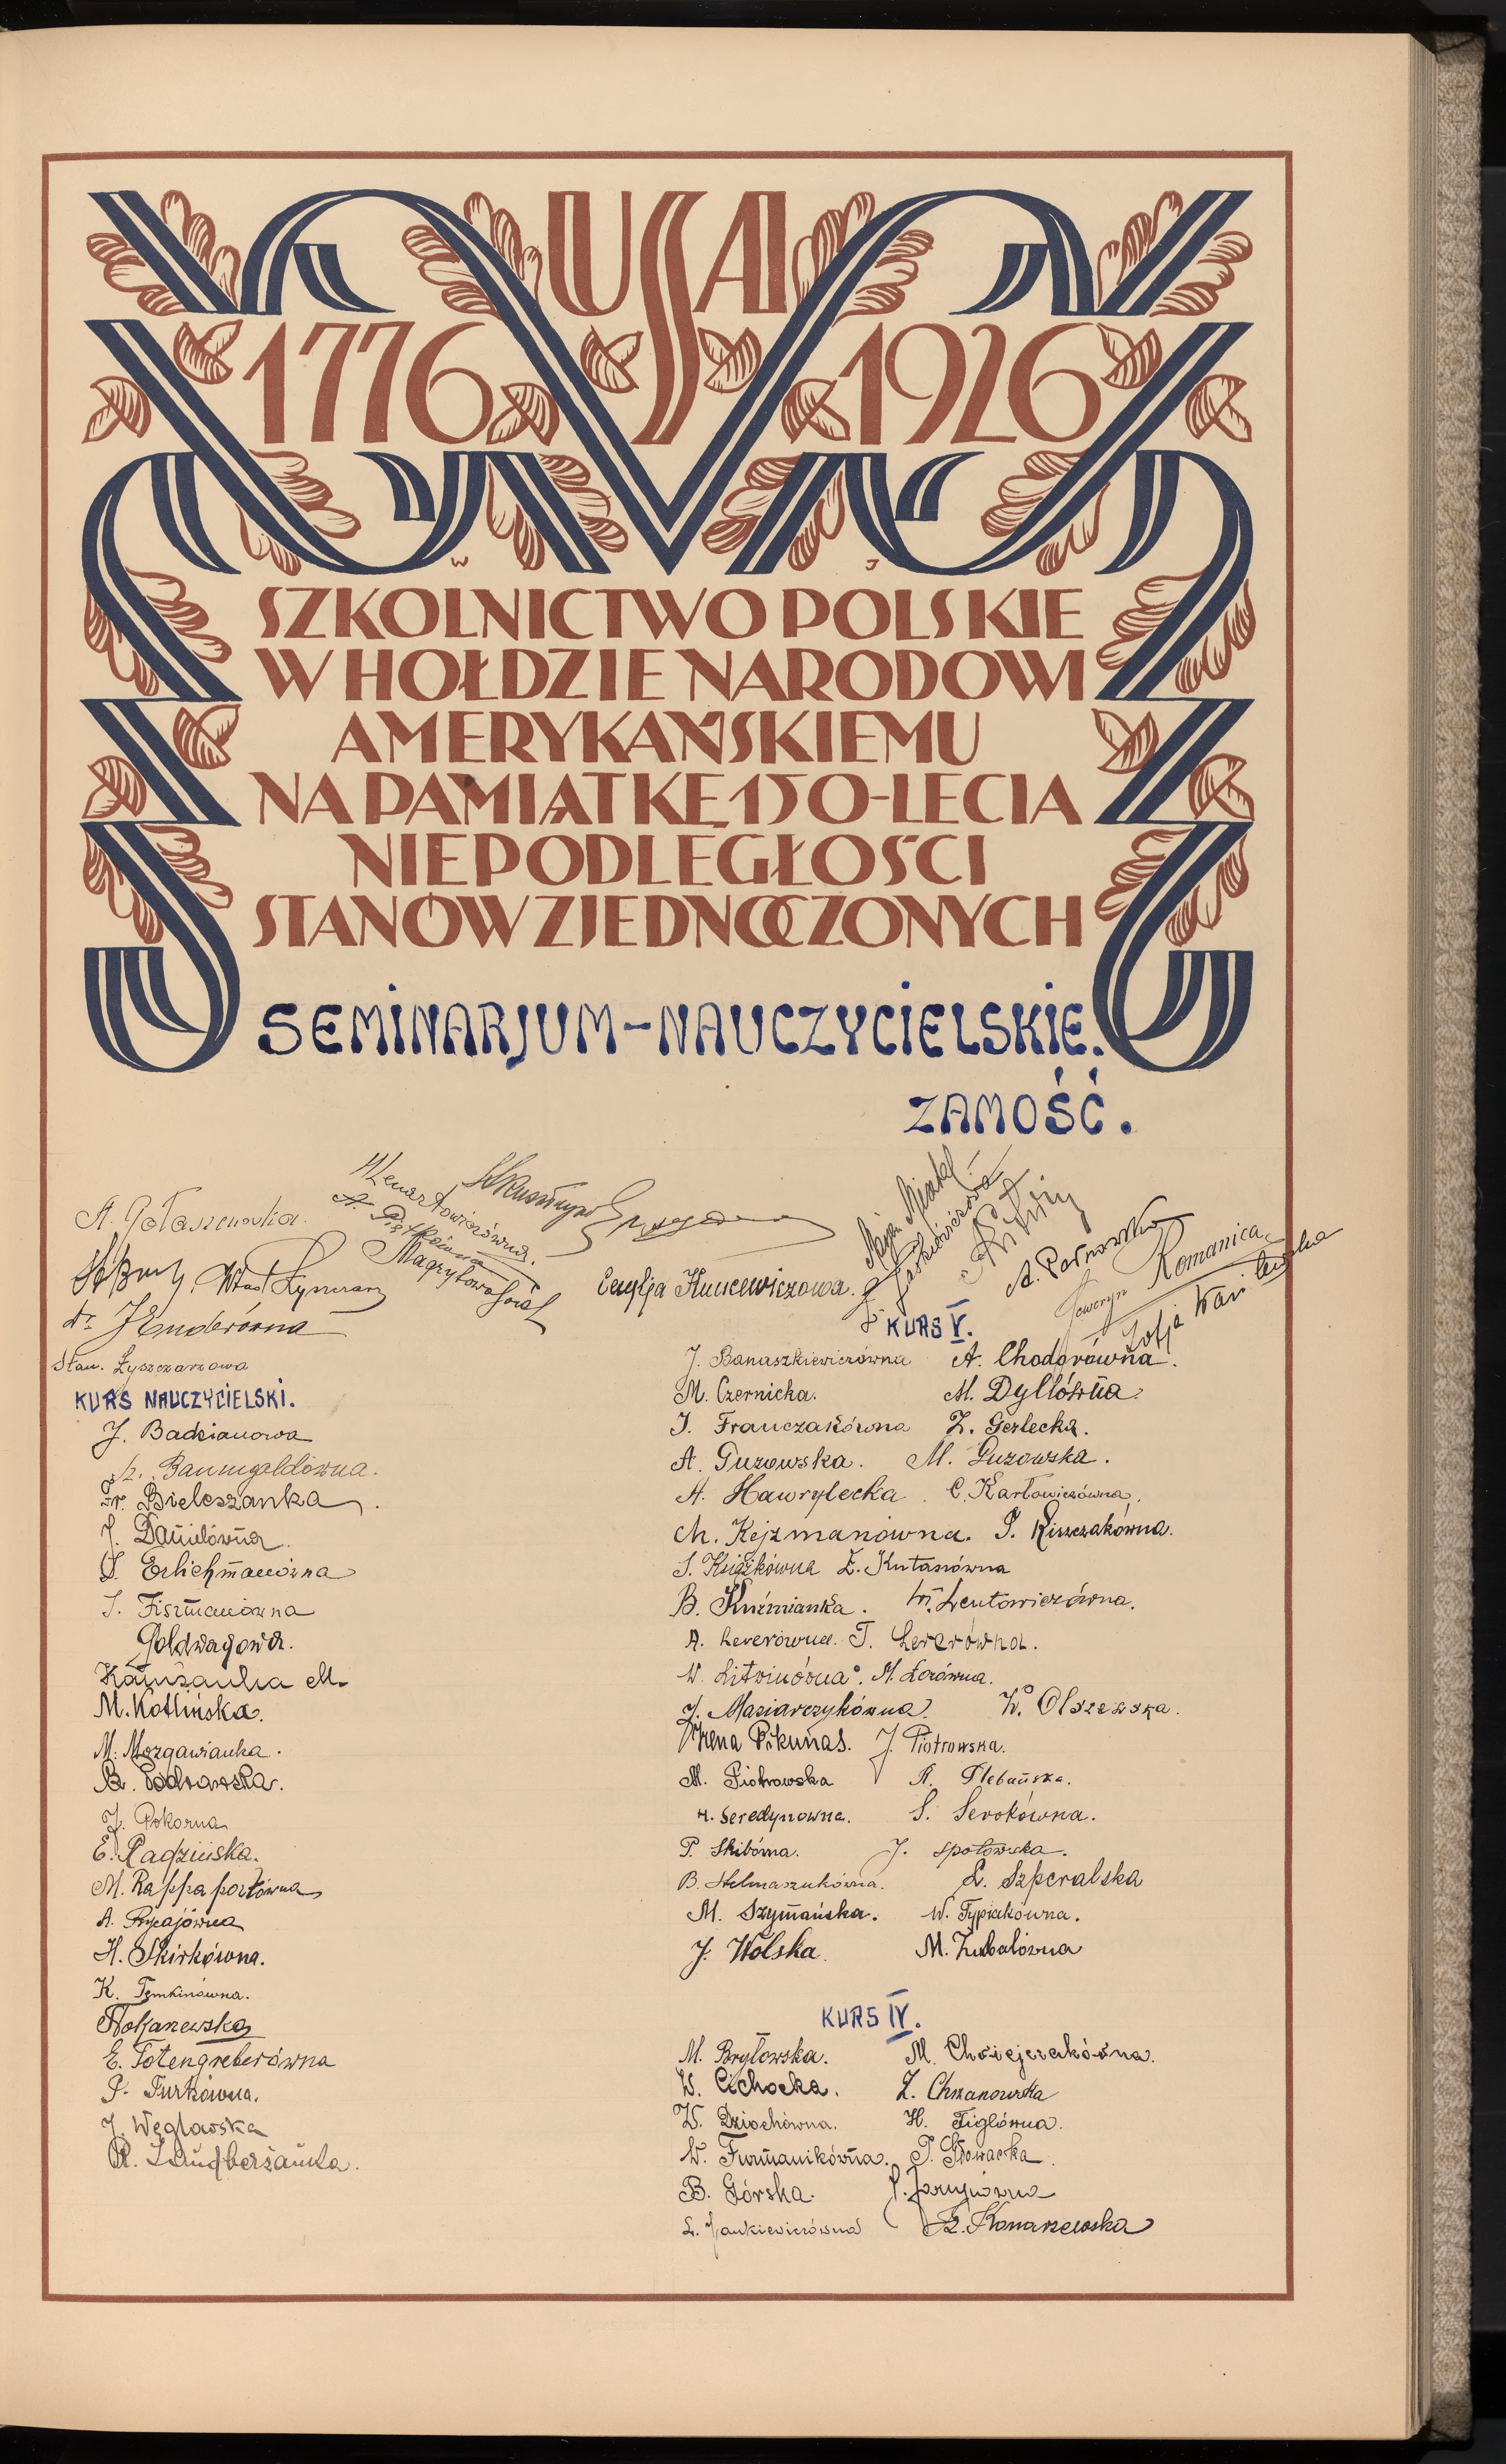 USA
1776 1926
W J
SZKOLNICTWO POLSKIE
W HOŁDZIE NARODOWI
AMERYKAŃSKIEMU
NA PAMIĄTKĘ 150-LECIA
NIEPODLEGŁOŚCI
STANÓW ZJEDNOCZONYCH
SEMINARJUM-NAUCZYCIELSKIE.
ZAMOŚĆ.
A. Gołaszewska.
Lenartowiczówna.
A. Piętkówna
A. Parnawska
Seweryn Romanica
Emilja Kuncewiczowa.
Zofja
J. Enderówna
Stan. Łyszczarzowa
KURS NAUCZYCIELSKI.
J. Badzianowa
Baumgoldówna.
Fr. Bieleszanka.
J. Danielówna.
S. Erlichmanówna
I. Fiszmanówna
Goldwagowa.
M.
M. Kotlińska.
M. Mozgawianka.
J. Pokorna
E. Radzińska.
M. Rappaportówna
A. Ryczajówna
H. Skirkówna.
K. Temkinówna.
E. Totengreberówna
P. Turkówna.
J. Węglawska
KURS V.
J. Banaszkiewiczówna A. Chodorówna.
M. Czernicka. M. Dyllówna.
J. Franczakówna Z. Gerlecka.
A. Guzowska. M. Guzowska.
A. Hawrylecka C. Karłowiczówna.
Ch. Kejzmanówna. P. Kiszczakówna.
S. Książkówna E. Kutasówna
B. Kuźmianka. W. Leutowiczówna.
A. Lererówna. T. Lererówna.
W. Litwinówna. M. Łozówna.
J. Maziarczykówna. W. Olszewska.
Irena Pikunas. J. Piotrowska.
M. Piotrowska R. Plebańska.
H. Seredynowna. S. Serokówna.
P. Skibówna. J. Społowska.
B. Stelmaszukówna. L. Szperalska
M. Szymańska. W. Typiakówna.
J. Wolska. M. Zubalówna
KURS IV.
M. Bryłowska. M. Chwiejczakówna.
W. Cichocka. Z. Chrzanowska
W. Dziochówna. H. Figlówna.
W. Furmanikówna. P. Głowacka.
B. Górska.
L. Jankiewiczówna Konarzewska